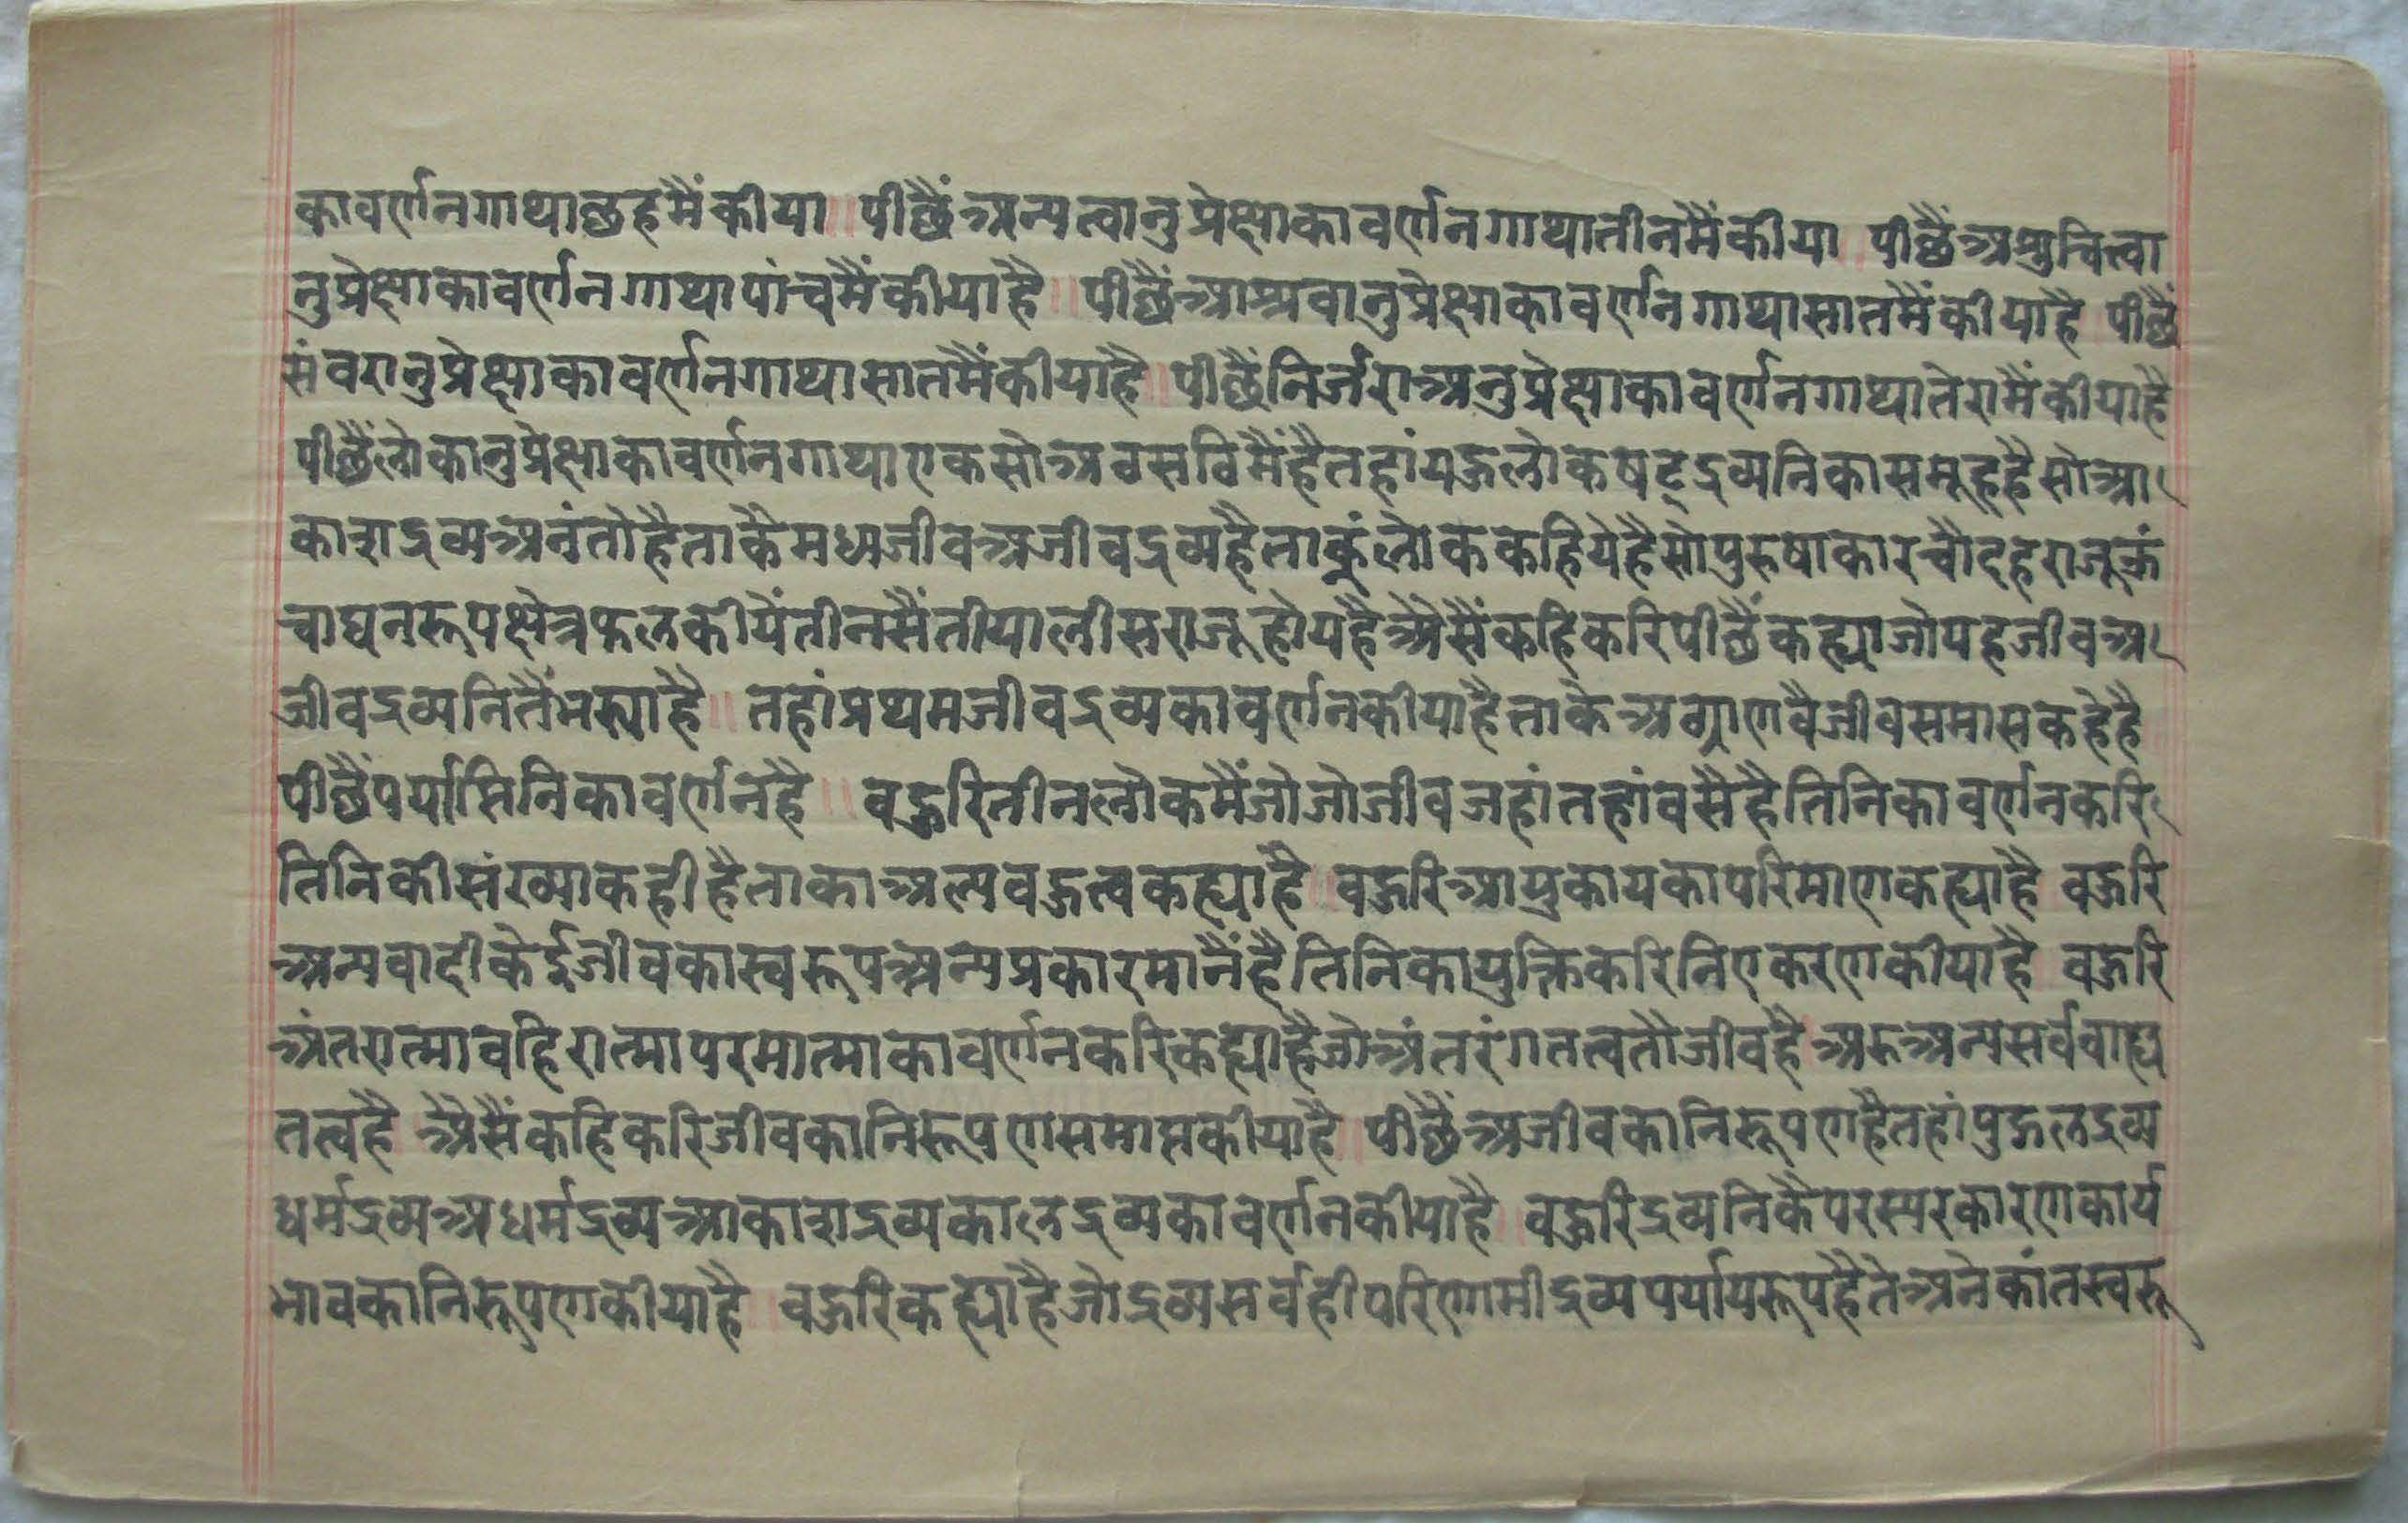 कावर्णनगाथाछहमैंकीया ॥ पीछैंअन्यत्वानुप्रेक्षाकावर्णनगाथातीनमैंकीया ॥ पीछैंअशुचित्वा
नुप्रेक्षाकावर्णनगाथापांचमैंकीयाहै ॥ पीछैंआश्रवानुप्रेक्षाकावर्णनगाथासातमैंकीयाहै ॥ पीछैं
संवरानुप्रेक्षाकावर्णनगाथासातमैंकीयाहै ॥ पीछैंनिर्जराअनुप्रेक्षाकावर्णनगाथातेरामैंकीयाहै
पीछैंलोकानुप्रेक्षाकावर्णनगाथाएकसोअवसविमैंहैतहांयहुलोकषट्द्रव्यनिकासमूहहैसोआ
काशद्रव्यअनंतोहैताकैमध्यजीवअजीवद्रव्यहैताकूंलोककहियेहैसोपुरुषाकारचौदहराजूऊं
चाघनरूपक्षेत्रफलकीयेंतीनसैंतीयालीसराजूहोयहैअैसैंकहिकरिपीछैंकह्याजोयहजीवअ
जीवद्रव्यनितैंभस्याहै ॥ तहांप्रथमजीवद्रव्यकावर्णनकीयाहैताकेअठ्याणवैजीवसमासकहेहै
पीछैंपर्याप्तिनिकावर्णनहै ॥ बहुरितीनलोकमैंजोजोजीवजहांतहांवसैहैतिनिकावर्णनकरि
तिनिकीसंख्याकहीहैताकाअल्पबहुत्वकह्याहै ॥ बहुरिआयुकायकापरिमाणकह्याहै ॥ बहुरि
अन्यवादीकेईजीवकास्वरूपअन्यप्रकारमानैंहैतिनिकायुक्तिकरिनिराकरणकीयाहै ॥ बहुरि
अंतरात्माबहिरात्मापरमात्माकावर्णनकरिकह्याहैजोअंतरंगतत्वतौजीवहै।अरुअन्यसर्वबाह्य
तत्वहै ॥ अैसैंकहिकरिजीवकानिरूपणसमाप्तकीयाहै ॥ पीछैंअजीवकानिरूपणहैतहांपुद्गलद्रव्य
धर्मद्रव्यअधर्मद्रव्यआकाशद्रव्यकालद्रव्यकावर्णनकीयाहै ॥ बहुरिद्रव्यनिकैपरस्परकारणकार्य
भावकानिरूपणकीयाहै ॥ बहुरिकह्याहैजोद्रव्यसर्वहीपरिणामीद्रव्यपर्यायरूपहैतेअनेकांतस्वरू